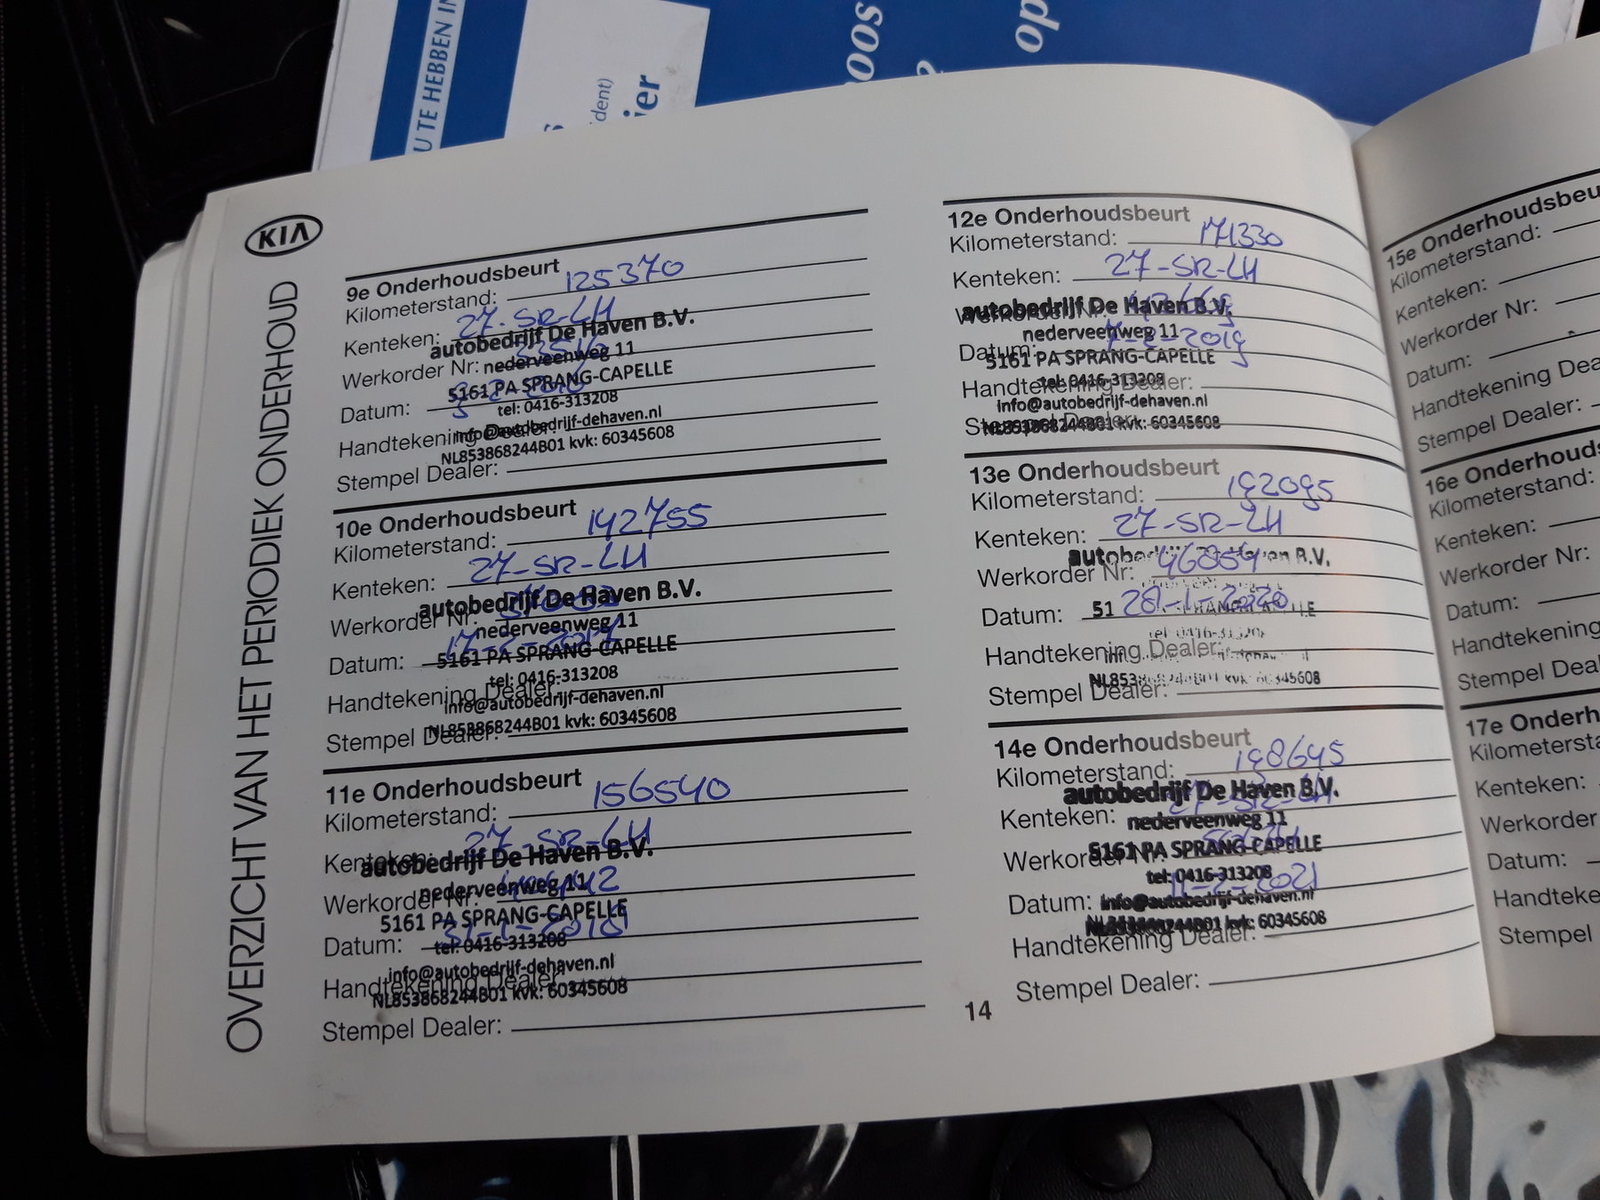 U TE HEBBEN IN
ident)
ier
oos
op
KIA
OVERZICHT VAN HET PERIODIEK ONDERHOUD
9e Onderhoudsbeurt
Kilometerstand: 125370
Kenteken: 27-SR-LH
autobedrijf De Haven B.V.
Werkorder Nr:
nederveenweg 11
5161 PA SPRANG-CAPELLE
Datum:
tel: 0416-313208
Handtekening Dealer:
info@autobedrijf-dehaven.nl
NL853868244B01 kvk: 60345608
Stempel Dealer:
10e Onderhoudsbeurt
Kilometerstand: 142755
Kenteken: 27-SR-LH
autobedrijf De Haven B.V.
Werkorder Nr:
nederveenweg 11
Datum: 17-2-2017
5161 PA SPRANG-CAPELLE
tel: 0416-313208
Handtekening Dealer:
info@autobedrijf-dehaven.nl
NL853868244B01 kvk: 60345608
Stempel Dealer:
11e Onderhoudsbeurt
Kilometerstand: 156540
Kenteken: 27-SR-LH
autobedrijf De Haven B.V.
Werkorder Nr:
nederveenweg 11
5161 PA SPRANG-CAPELLE
Datum: 31-1-2018
tel: 0416-313208
info@autobedrijf-dehaven.nl
Handtekening Dealer:
NL853868244B01 kvk: 60345608
Stempel Dealer:
12e Onderhoudsbeurt
Kilometerstand: 171330
Kenteken: 27-SR-LH
autobedrijf De Haven B.V.
Werkorder Nr:
nederveenweg 11
Datum: 7-2-2019
5161 PA SPRANG-CAPELLE
tel: 0416-313208
Handtekening Dealer:
info@autobedrijf-dehaven.nl
NL853868244B01 kvk: 60345608
Stempel Dealer:
13e Onderhoudsbeurt
Kilometerstand: 192095
Kenteken: 27-SR-LH
Werkorder Nr: 46859
Datum: 28-1-2020
Handtekening Dealer:
Stempel Dealer:
14e Onderhoudsbeurt
Kilometerstand: 198645
autobedrijf De Haven B.V.
Kenteken: 27-SR-LH
nederveenweg 11
5161 PA SPRANG-CAPELLE
Werkorder Nr:
tel: 0416-313208
Datum: 11-2-2021
info@autobedrijf-dehaven.nl
NL853868244B01 kvk: 60345608
Handtekening Dealer:
Stempel Dealer:
14
15e Onderhoudsbeu
Kilometerstand:
Kenteken:
Werkorder Nr:
Datum:
Handtekening Dea
Stempel Dealer:
16e Onderhouds
Kilometerstand:
Kenteken:
Werkorder Nr:
Datum:
Handtekening
Stempel Deal
17e Onderh
Kilometersta
Kenteken:
Werkorder
Datum:
Handteke
Stempel